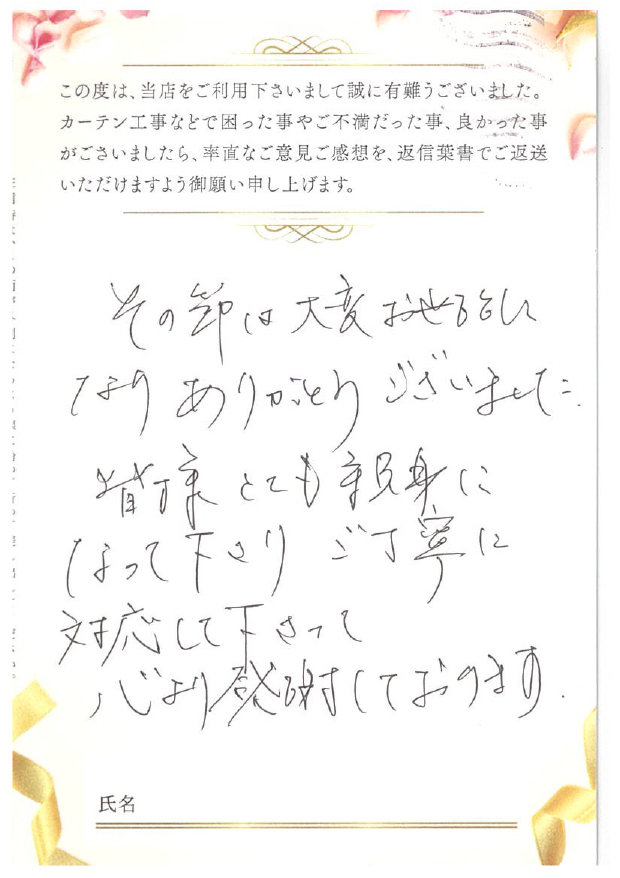 この度は、当店をご利用下さいまして誠に有難うございました。
カーテン工事などで困った事やご不満だった事、良かった事
がございましたら、率直なご意見ご感想を、返信葉書でご返送
いただけますよう御願い申し上げます。
その節は大変お世話に
なりありがとうございました.
皆様とても親身に
なって下さり ご丁寧に
対応して下さって
心より感謝しております.
氏名